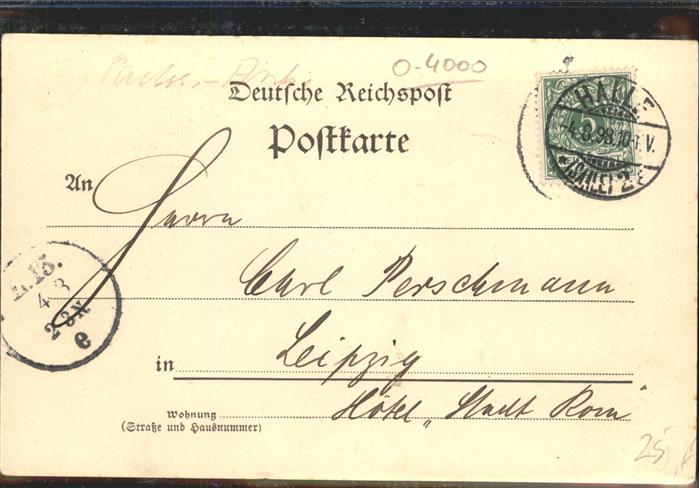 0-4000
Deutsche Reichspost
Postkarte
HALLE
4.8.98.10-11 V.
(SAALE) 2
5
An
Herrn
Carl Perschmann
in Leipzig
Wohnung
(Straße und Hausnummer)
Hôtel „Stadt Rom“
4 8
2-3 N
e
25